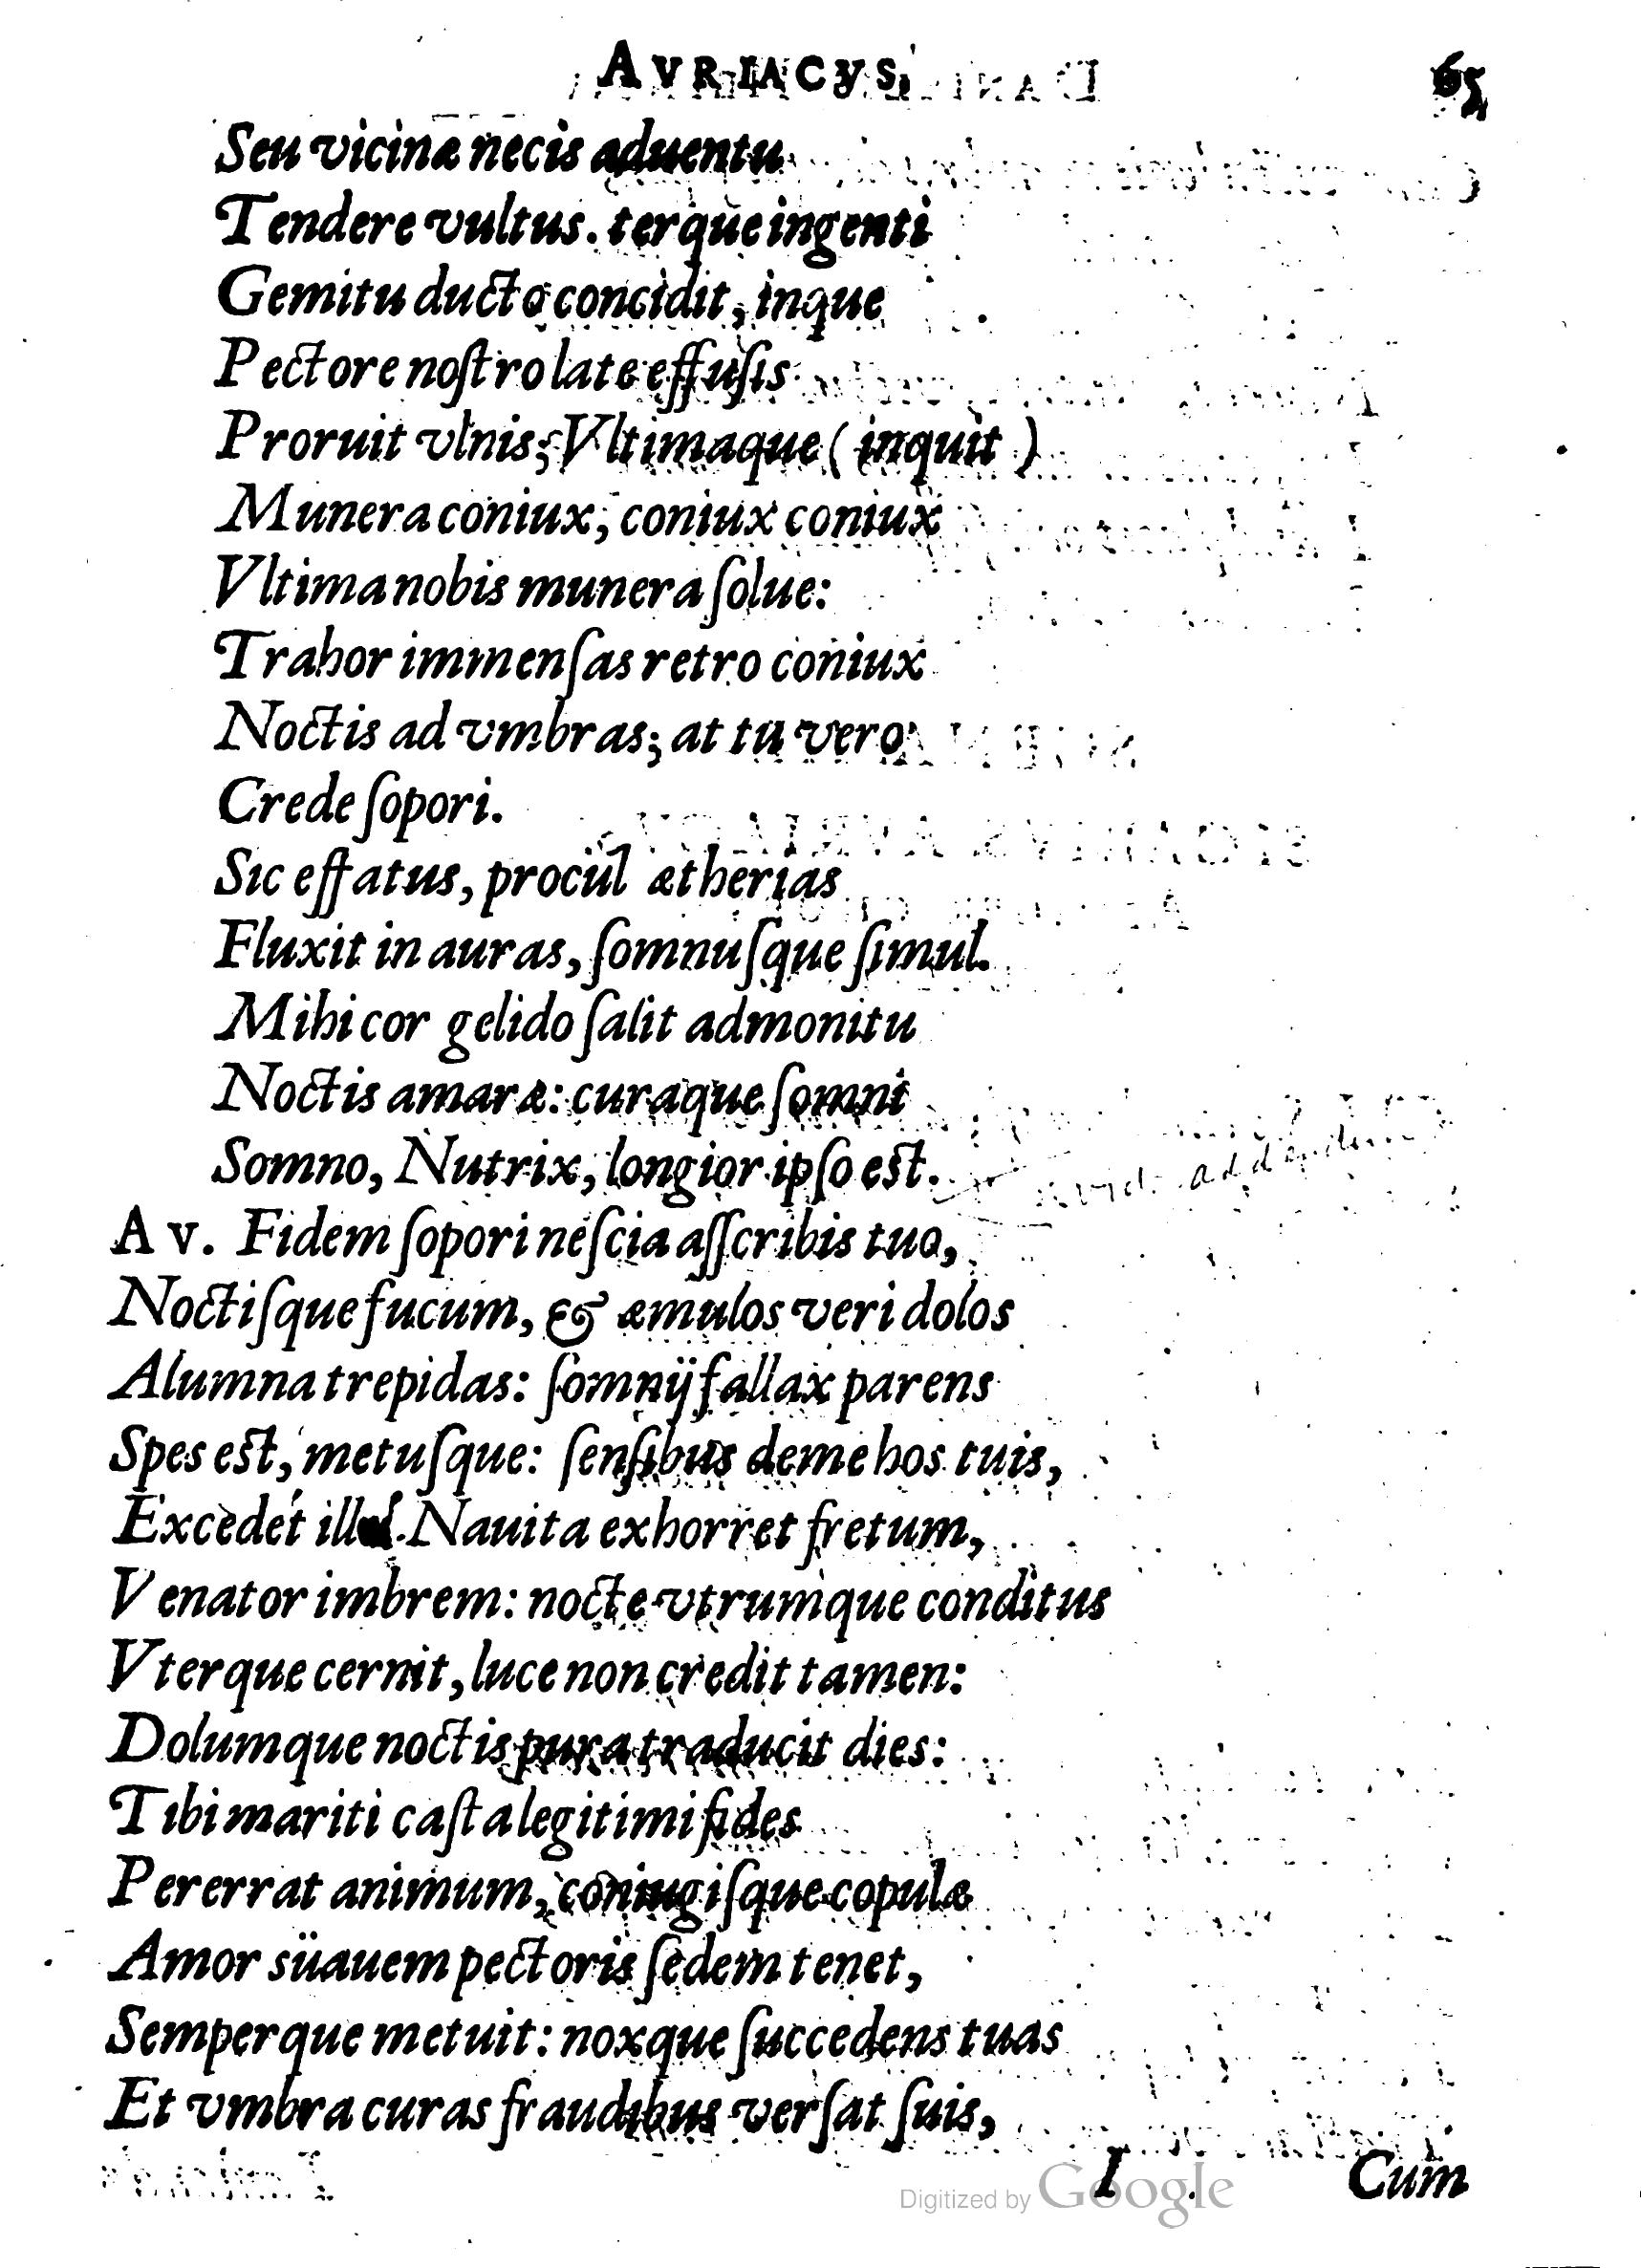 AVRIACVS. 65
Seu vicinæ necis aduentu
Tendere vultus. terque ingenti
Gemitu ducto concidit, inque
Pectore noſtro late effuſis
Proruit vlnis; Vltimaque ( inquit )
Munera coniux, coniux coniux
Vltima nobis munera ſolue:
Trahor immenſas retro coniux
Noctis ad vmbras; at tu vero
Crede ſopori.
Sic effatus, procul ætherias
Fluxit in auras, ſomnuſque ſimul.
Mihi cor gelido ſalit admonitu
Noctis amaræ: curaque ſomni
Somno, Nutrix, longior ipſo est. addendum
Av. Fidem ſopori neſcia aſſcribis tuo,
Noctiſque fucum, & æmulos veri dolos
Alumna trepidas: ſomnij fallax parens
Spes est, metuſque: ſenſibus deme hos tuis,
Excedet Nauita exhorret fretum,
Venator imbrem: nocte vtrumque conditus
Vterque cernit, luce non credit tamen:
Dolumque noctis pura traducit dies:
Tibi mariti caſta legitimi fides
Pererrat animum, coniugiſque copulæ
Amor süauem pectoris ſedem tenet,
Semperque metuit: noxque ſuccedens tuas
Et vmbra curas fraudibus verſat ſuis,
I Cum
Digitized by Google